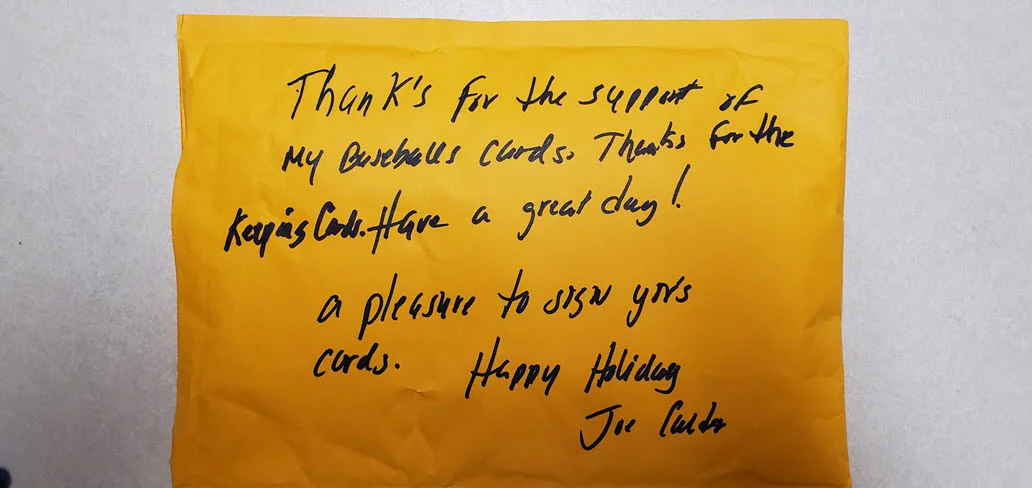 Thank's for the support of
My Baseballs Cards. Thanks for the
Keeping Cards. Have a great day!
a pleasure to sign yors
cards. Happy Holiday
Joe